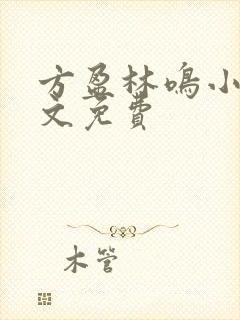 方盈林鸣小
文免费
木管